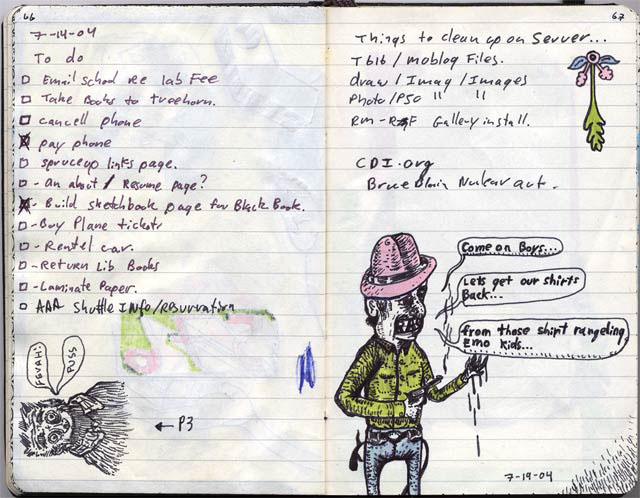 66
7-14-04
To do
Email school ree lab Fee
Take Books to treehorn.
cancell phone
pay phone
spruceup links page.
- An about / Resume page?
- Build sketchbook page for Black Book.
- Buy Plane tickets
- Rental car.
- Return Lib Books
- Laminate Paper.
AAA Shuttle Info/
PUSS
← P3
67
Things to clean up on Server...
/ moblog Files.
draw / Imag / Images
Photo/PSC " "
Rm -R Gallery install.
CDI.org
Bruce Blain Nuclear act.
Come on Boys...
Lets get our shirts
Back...
from those shirt rangeling
Emo kids...
7-14-04